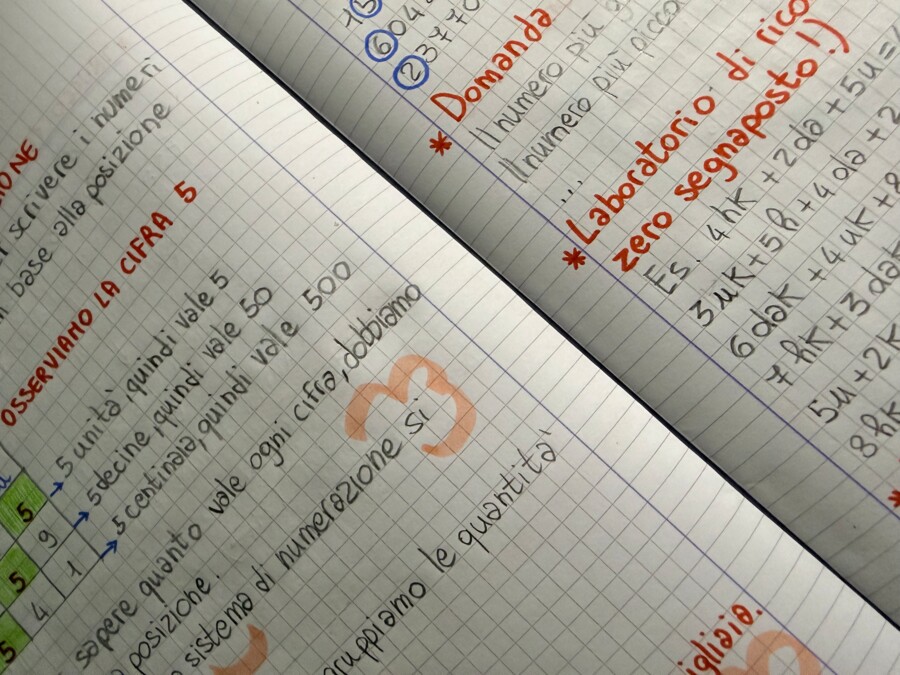 scrivere i numeri
base alla posizione
OSSERVIAMO LA CIFRA 5
5 → 5 unità, quindi vale 5
5 9 → 5 decine, quindi vale 50
5 4 1 → 5 centinaia, quindi vale 500
sapere quanto vale ogni cifra, dobbiamo
posizione.
sistema di numerazione si
le quantità
15
604
23770
* Domanda
Il numero più
Il numero più
...
* Laboratorio di
zero segnaposto!)
Es. 4hK + 2da + 5u =
3uK + 5h + 4da + 2
6daK + 4uK + 8
7hK + 3daK
5u + 2
8hK